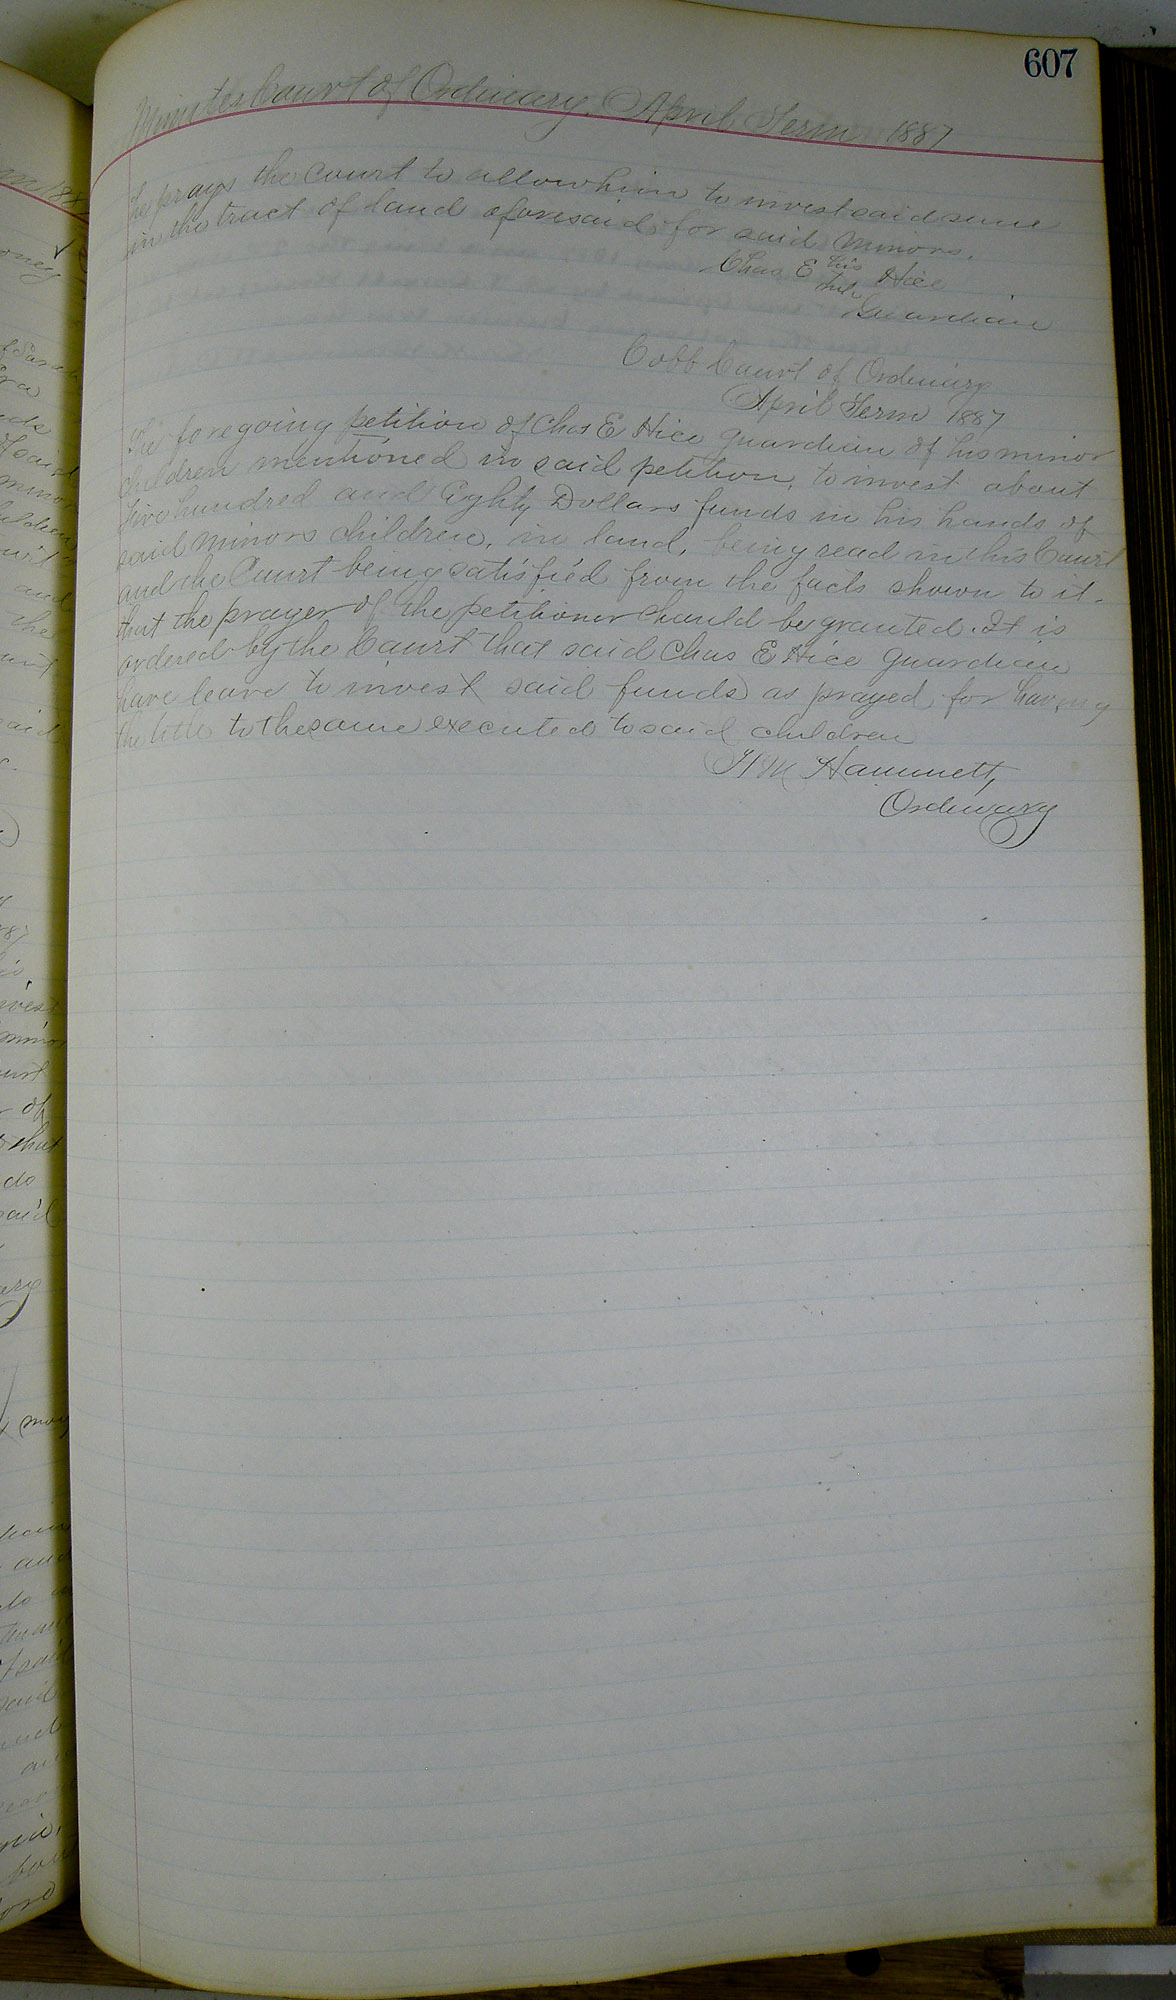 607
Minutes Court of Ordinary, April Term 1887
he prays the court to allow him to invest said sume
in the tract of land aforesaid for said minors.
Chas E his Hice
mark
Guardian
Cobb Court of Ordinary
April Term 1887
The foregoing petition of Chas E Hice guardian of his minor
children mentioned in said petition, to invest about
five hundred and Eighty Dollars funds in his hands of
said minors children, in land, being read in this Court
and the Court being satisfied from the facts shown to it.
that the prayer of the petitioner should be granted. It is
ordered by the Court that said Chas E Hice guardian
have leave to invest said funds as prayed for having
the title to the same executed to said children
H M Hammett,
Ordinary